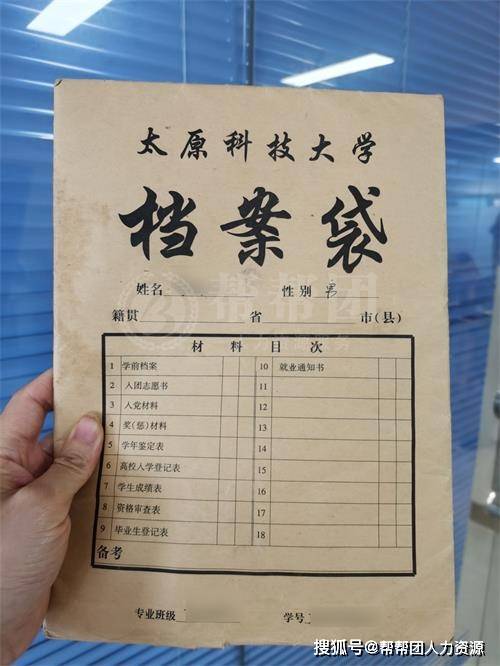 太原科技大学
档案袋
姓名 性别 男
籍贯 省 市(县)
帮帮团
材料目次
1 学前档案 10 就业通知书
2 入团志愿书 11
3 入党材料 12
4 奖(惩)材料 13
5 学年鉴定表 14
6 高校入学登记表 15
7 学生成绩表 16
8 资格审查表 17
9 毕业生登记表 18
备考
专业班级 学号
搜狐号@帮帮团人力资源